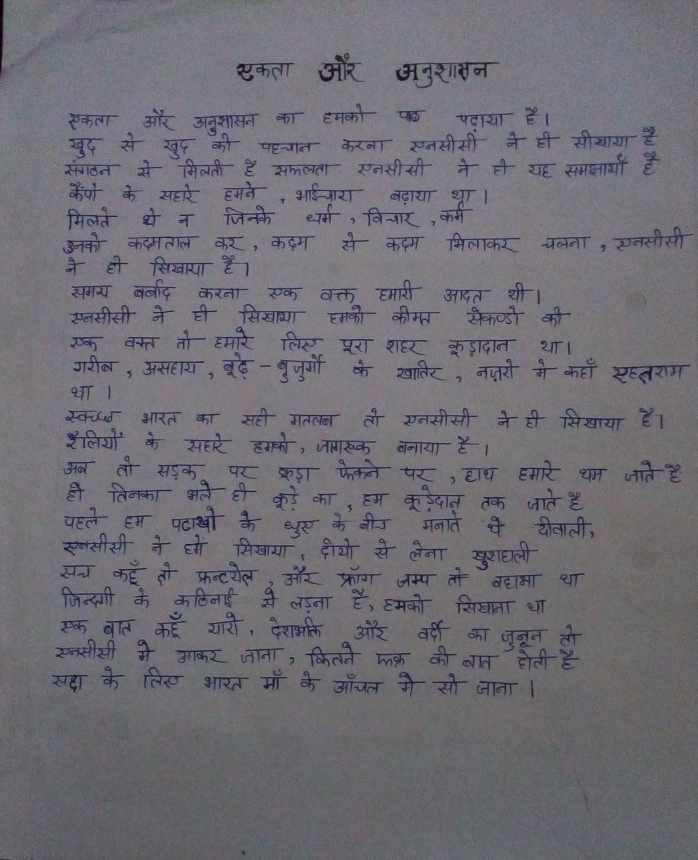 एकता और अनुशासन
एकता और अनुशासन का हमको पाठ पढ़ाया है।
खुद से खुद की पहचान करना एनसीसी ने ही सीखाया है
संगठन से मिलती है सफलता एनसीसी ने ही यह समझायाँ है
कैंपो के सहारे हमने, भाईचारा बढ़ाया था।
मिलते थे न जिनके धर्म, विचार, कर्म
उनको कदमताल कर, कदम से कदम मिलाकर चलना, एनसीसी
ने ही सिखाया है।
समय बर्बाद करना एक वक्त हमारी आदत थी।
एनसीसी ने ही सिखाया हमको कीमत सेकण्डो की
एक वक्त तो हमारे लिए पूरा शहर कूड़ादान था।
गरीब, असहाय, बूढ़े-बुजुर्गो के खातिर, नज़रो मे कहाँ एहतराम
था।
स्वच्छ भारत का सही मतलब तो एनसीसी ने ही सिखाया है।
रैलियों के सहारे हमको, जागरूक बनाया है।
अब तो सड़क पर कूड़ा फेकने पर, हाथ हमारे थम जाते है
हो तिनका भले ही कूड़े का, हम कूड़ेदान तक जाते है
पहले हम पटाखो के धुए के बीच मनाते थे दीवाली,
एनसीसी ने हमें सिखाया, दीयो से लेना खुशहाली
सच कहूँ तो फ्रन्टरोल, और फ्रॉग जम्प तो बहाना था
जिन्दगी के कठिनाई से लड़ना है, हमको सिखाना था
एक बात कहूँ यारो, देशभक्ति और वर्दी का जुनून तो
एनसीसी मे आकर जाना, कितने फक्र की बात होती है
सदा के लिए भारत माँ के आँचल मे सो जाना।